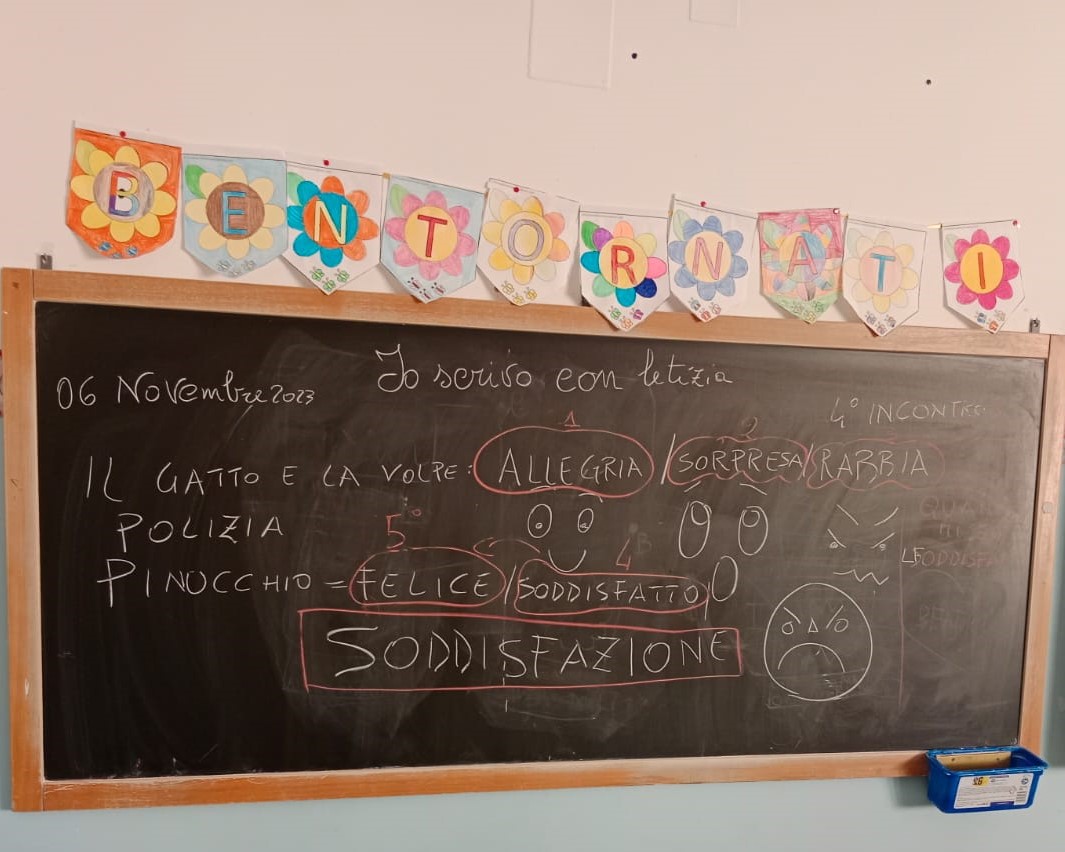 BENTORNATI
Io scrivo con letizia
06 Novembre 2023
4° INCONTRO
1 2
IL GATTO E LA VOLPE: ALLEGRIA / SORPRESA / RABBIA
POLIZIA 5° 4
PINOCCHIO = FELICE / SODDISFATTO
SODDISFAZIONE